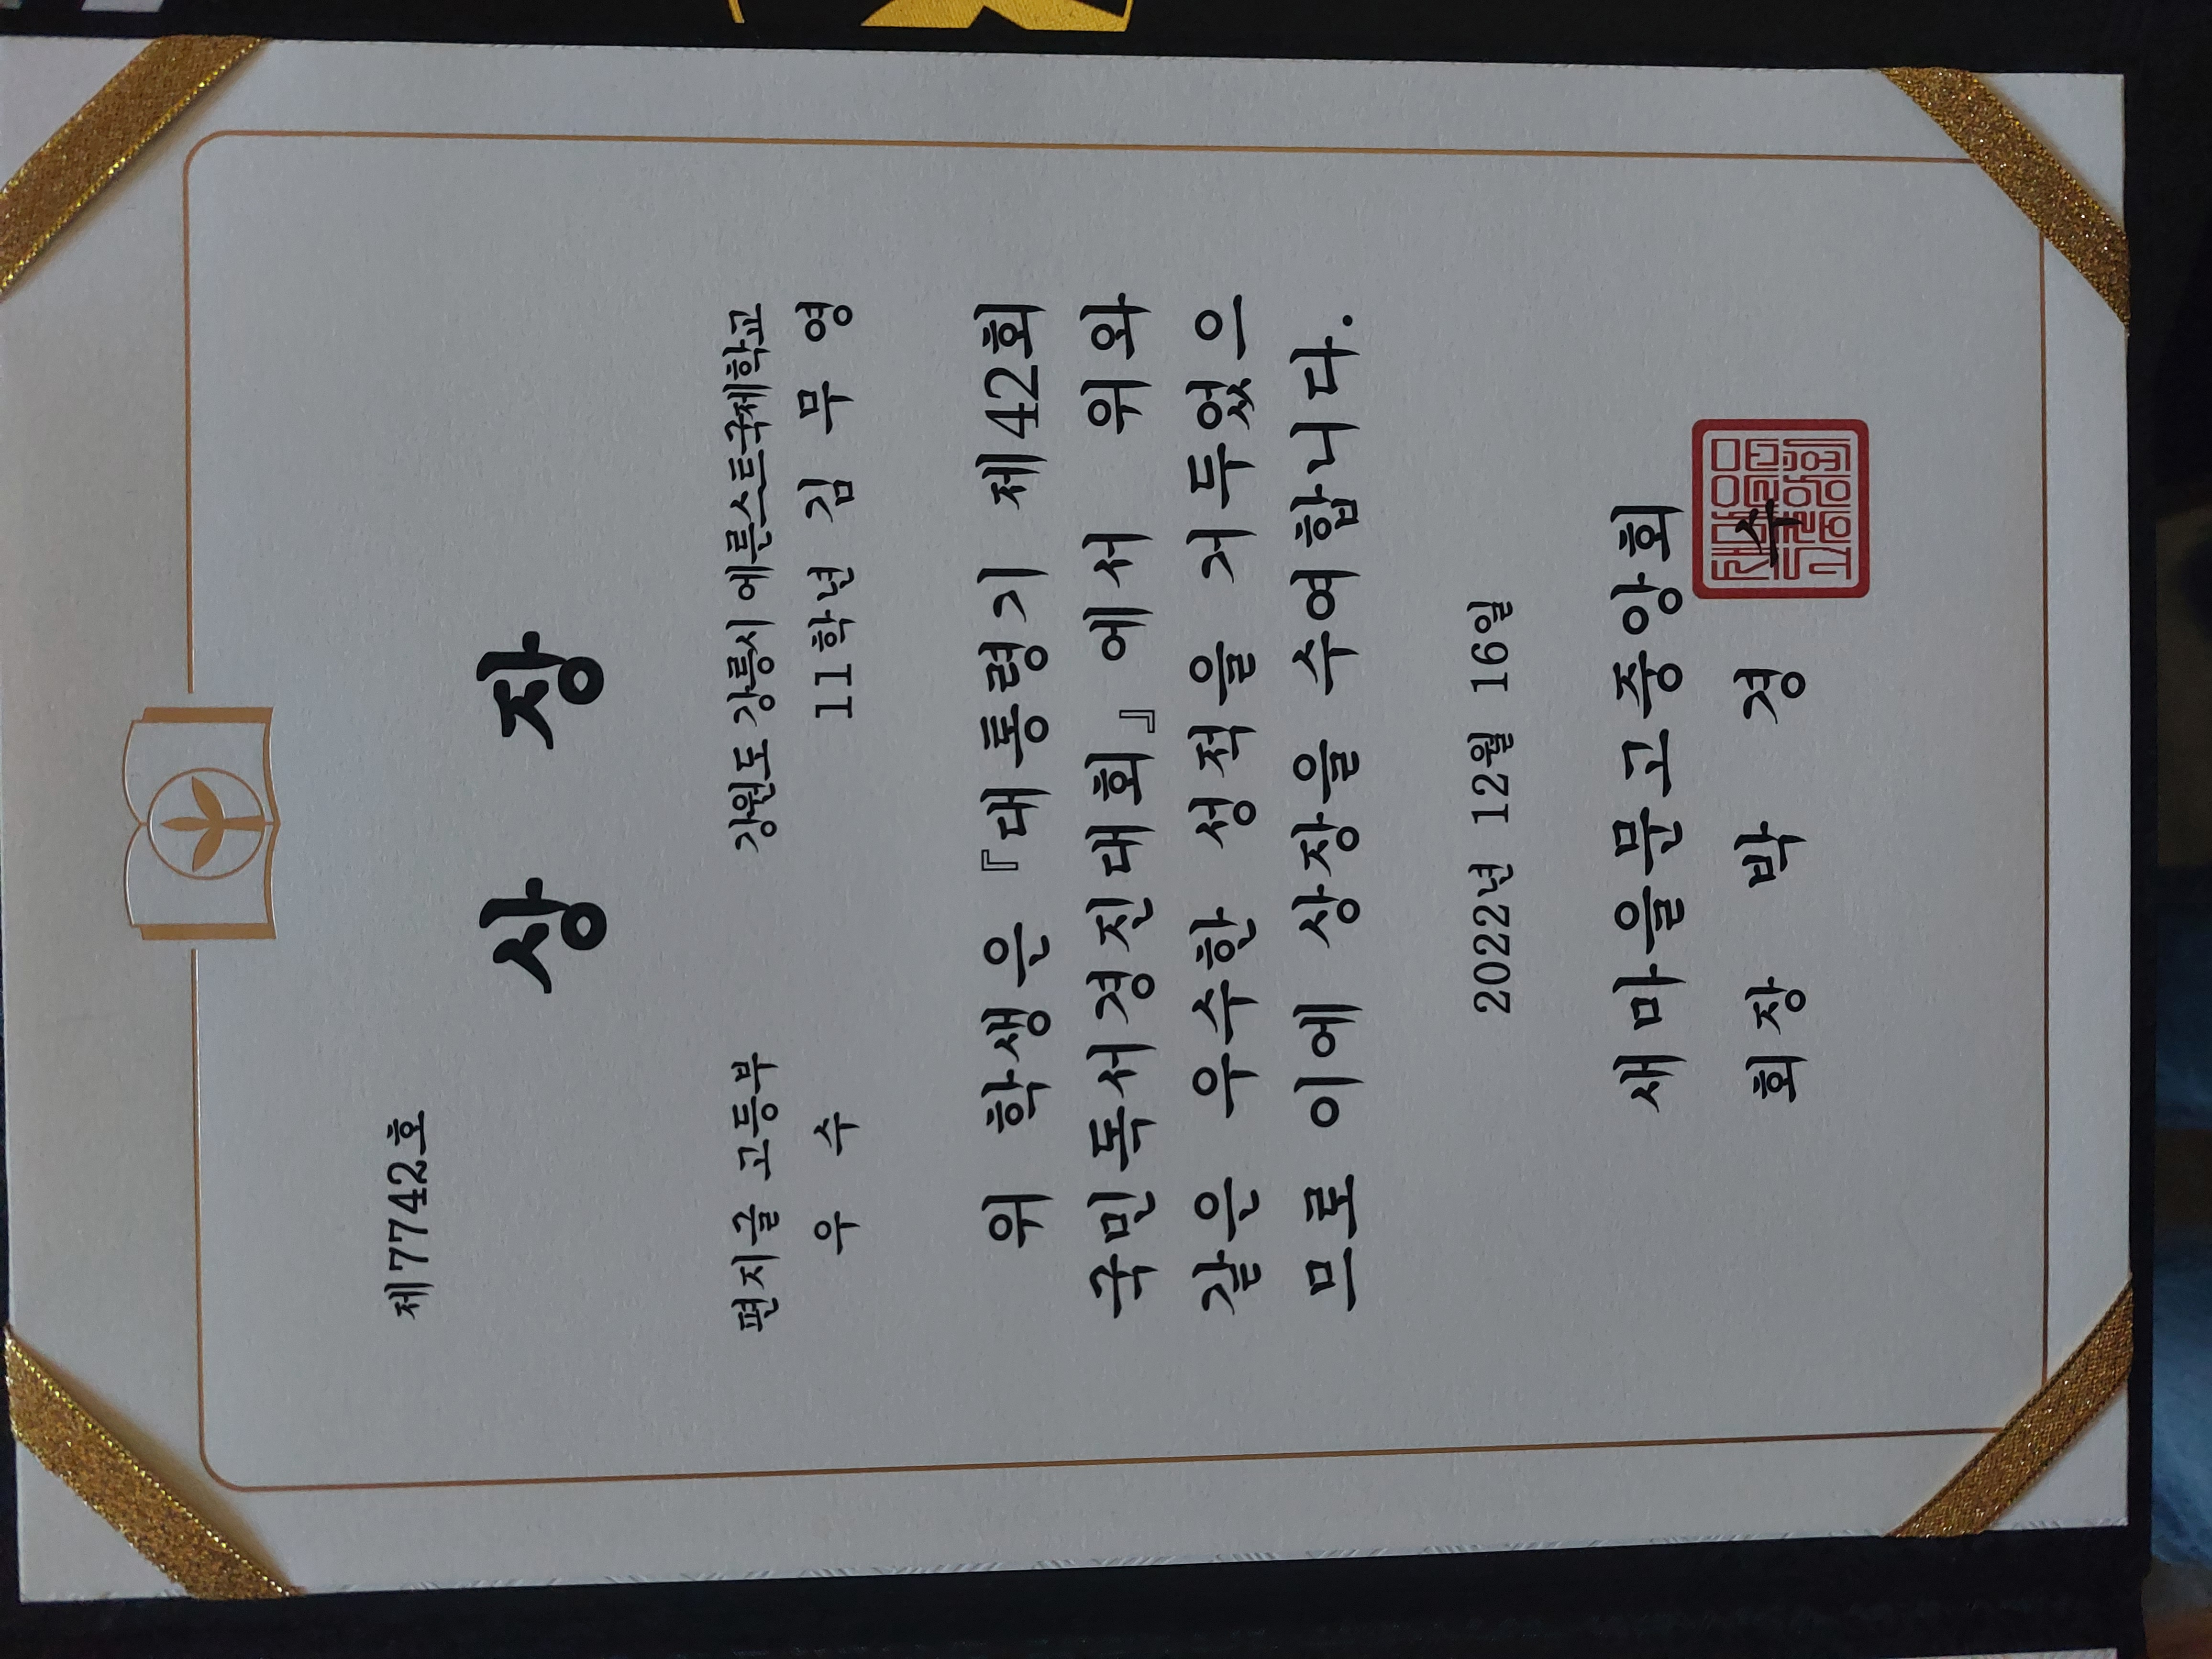 제7742호
상 장
편지글 고등부 강원도 강릉시 에른스트국제학교
우 수 11학년 김 무 영
위 학생은 『대통령기 제42회
국민독서경진대회』에서 위와
같은 우수한 성적을 거두었으
므로 이에 상장을 수여합니다.
2022년 12월 16일
새마을문고중앙회
회장 박 경 수